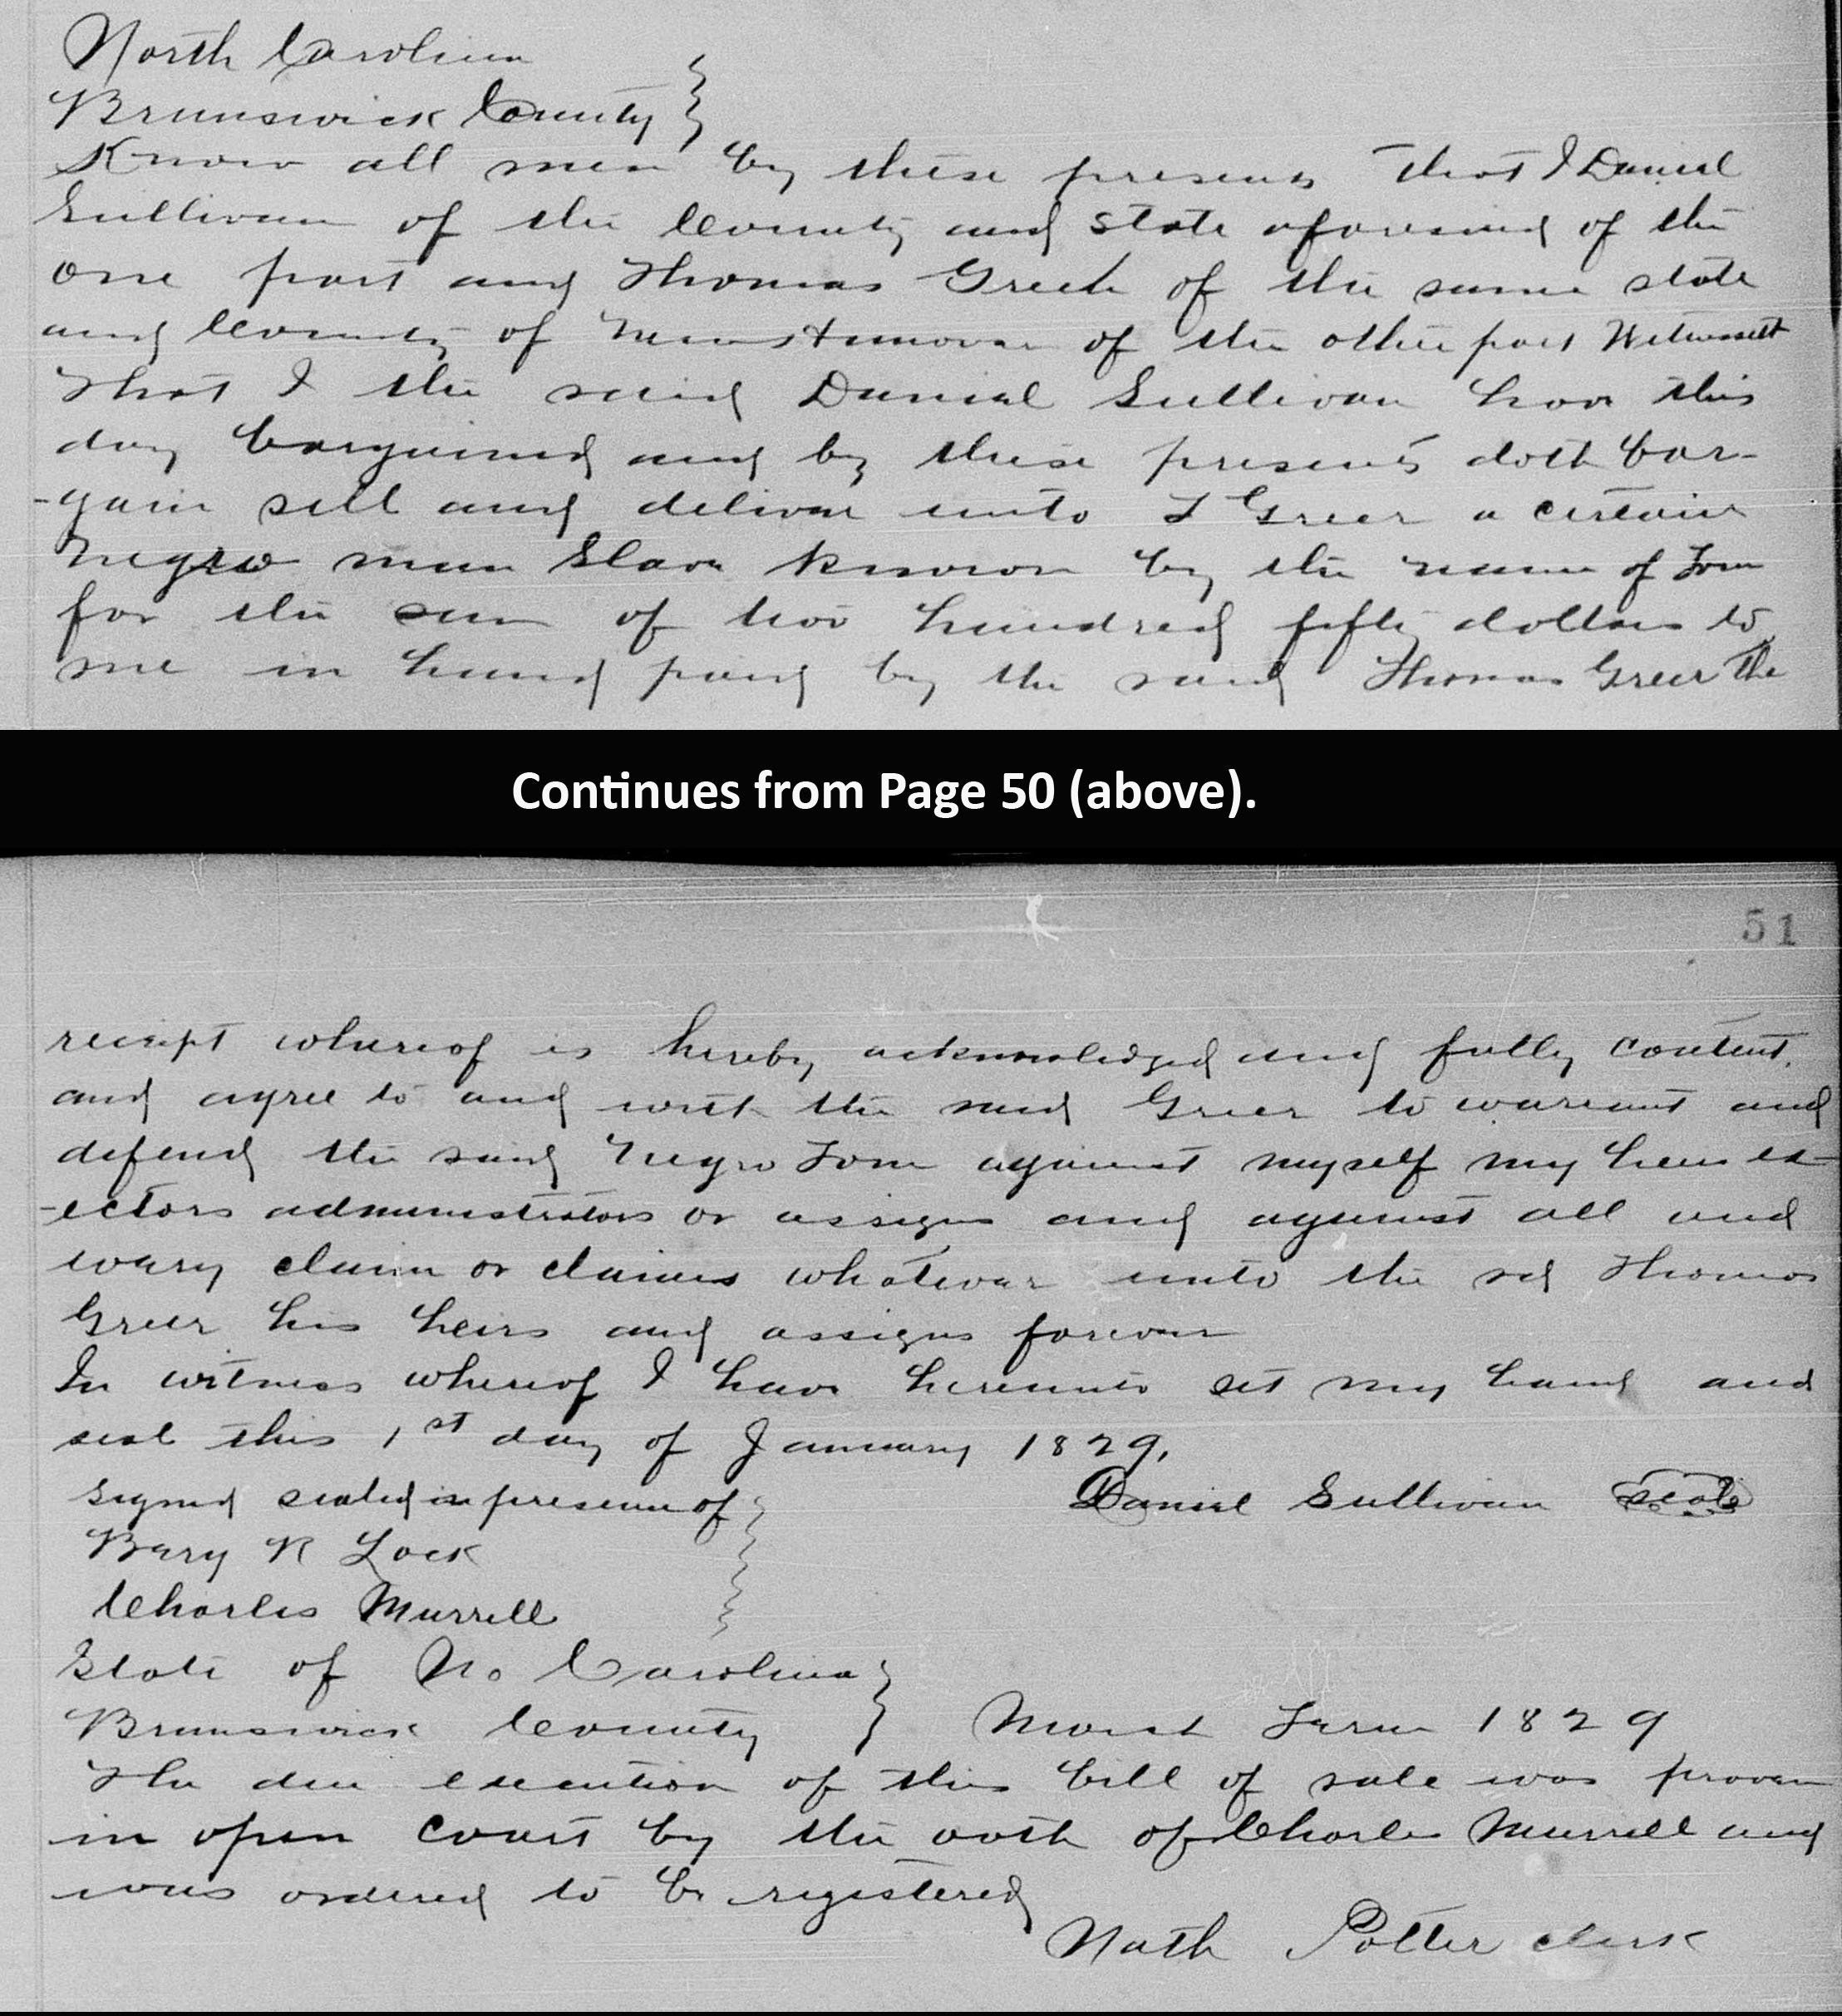 North Carolina
Brunswick County
Know all men by these presents That I Daniel
Sullivan of the County and State aforesaid of the
one part and Thomas Greer of the same state
and County of New Hanover of the other part Witnesseth
That I the said Daniel Sullivan have this
day bargained and by these presents doth bar-
-gain sell and deliver unto T Greer a certain
Negro man Slave known by the name of Tom
for the sum of two hundred fifty dollars to
me in hand paid by the said Thomas Greer The
Continues from Page 50 (above).
51
receipt whereof is hereby acknowledged and fully content.
and agree to and with the said Greer to warrant and
defend the said Negro Tom against myself my heirs ex-
-ectors administrators or assigns and against all and
every claim or claims whatever unto the sd Thomas
Greer his heirs and assigns forever
In witness whereof I have hereunto set my hand and
seal this 1st day of January 1829.
Signed sealed in presence of
Daniel Sullivan seal
Bary R Lock
Charles Murrell
State of No Carolina
Brunswick County March Term 1829
The due execution of this bill of sale was proven
in open court by the oath of Charles Murrell and
was ordered to be registered
Nath Potter clerk